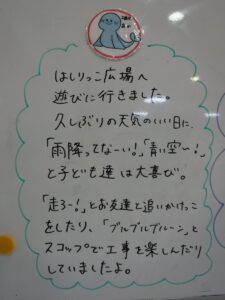 はしりっこ広場へ
遊びに行きました。
久しぶりの天気のいい日に、
「雨降ってなーい!」「青い空〜!」
と子ども達は大喜び。
「走ろー!」とお友達と追いかけっこ
をしたり、「ブルブルブルーン」と
スコップで工事を楽しんだり
していましたよ。